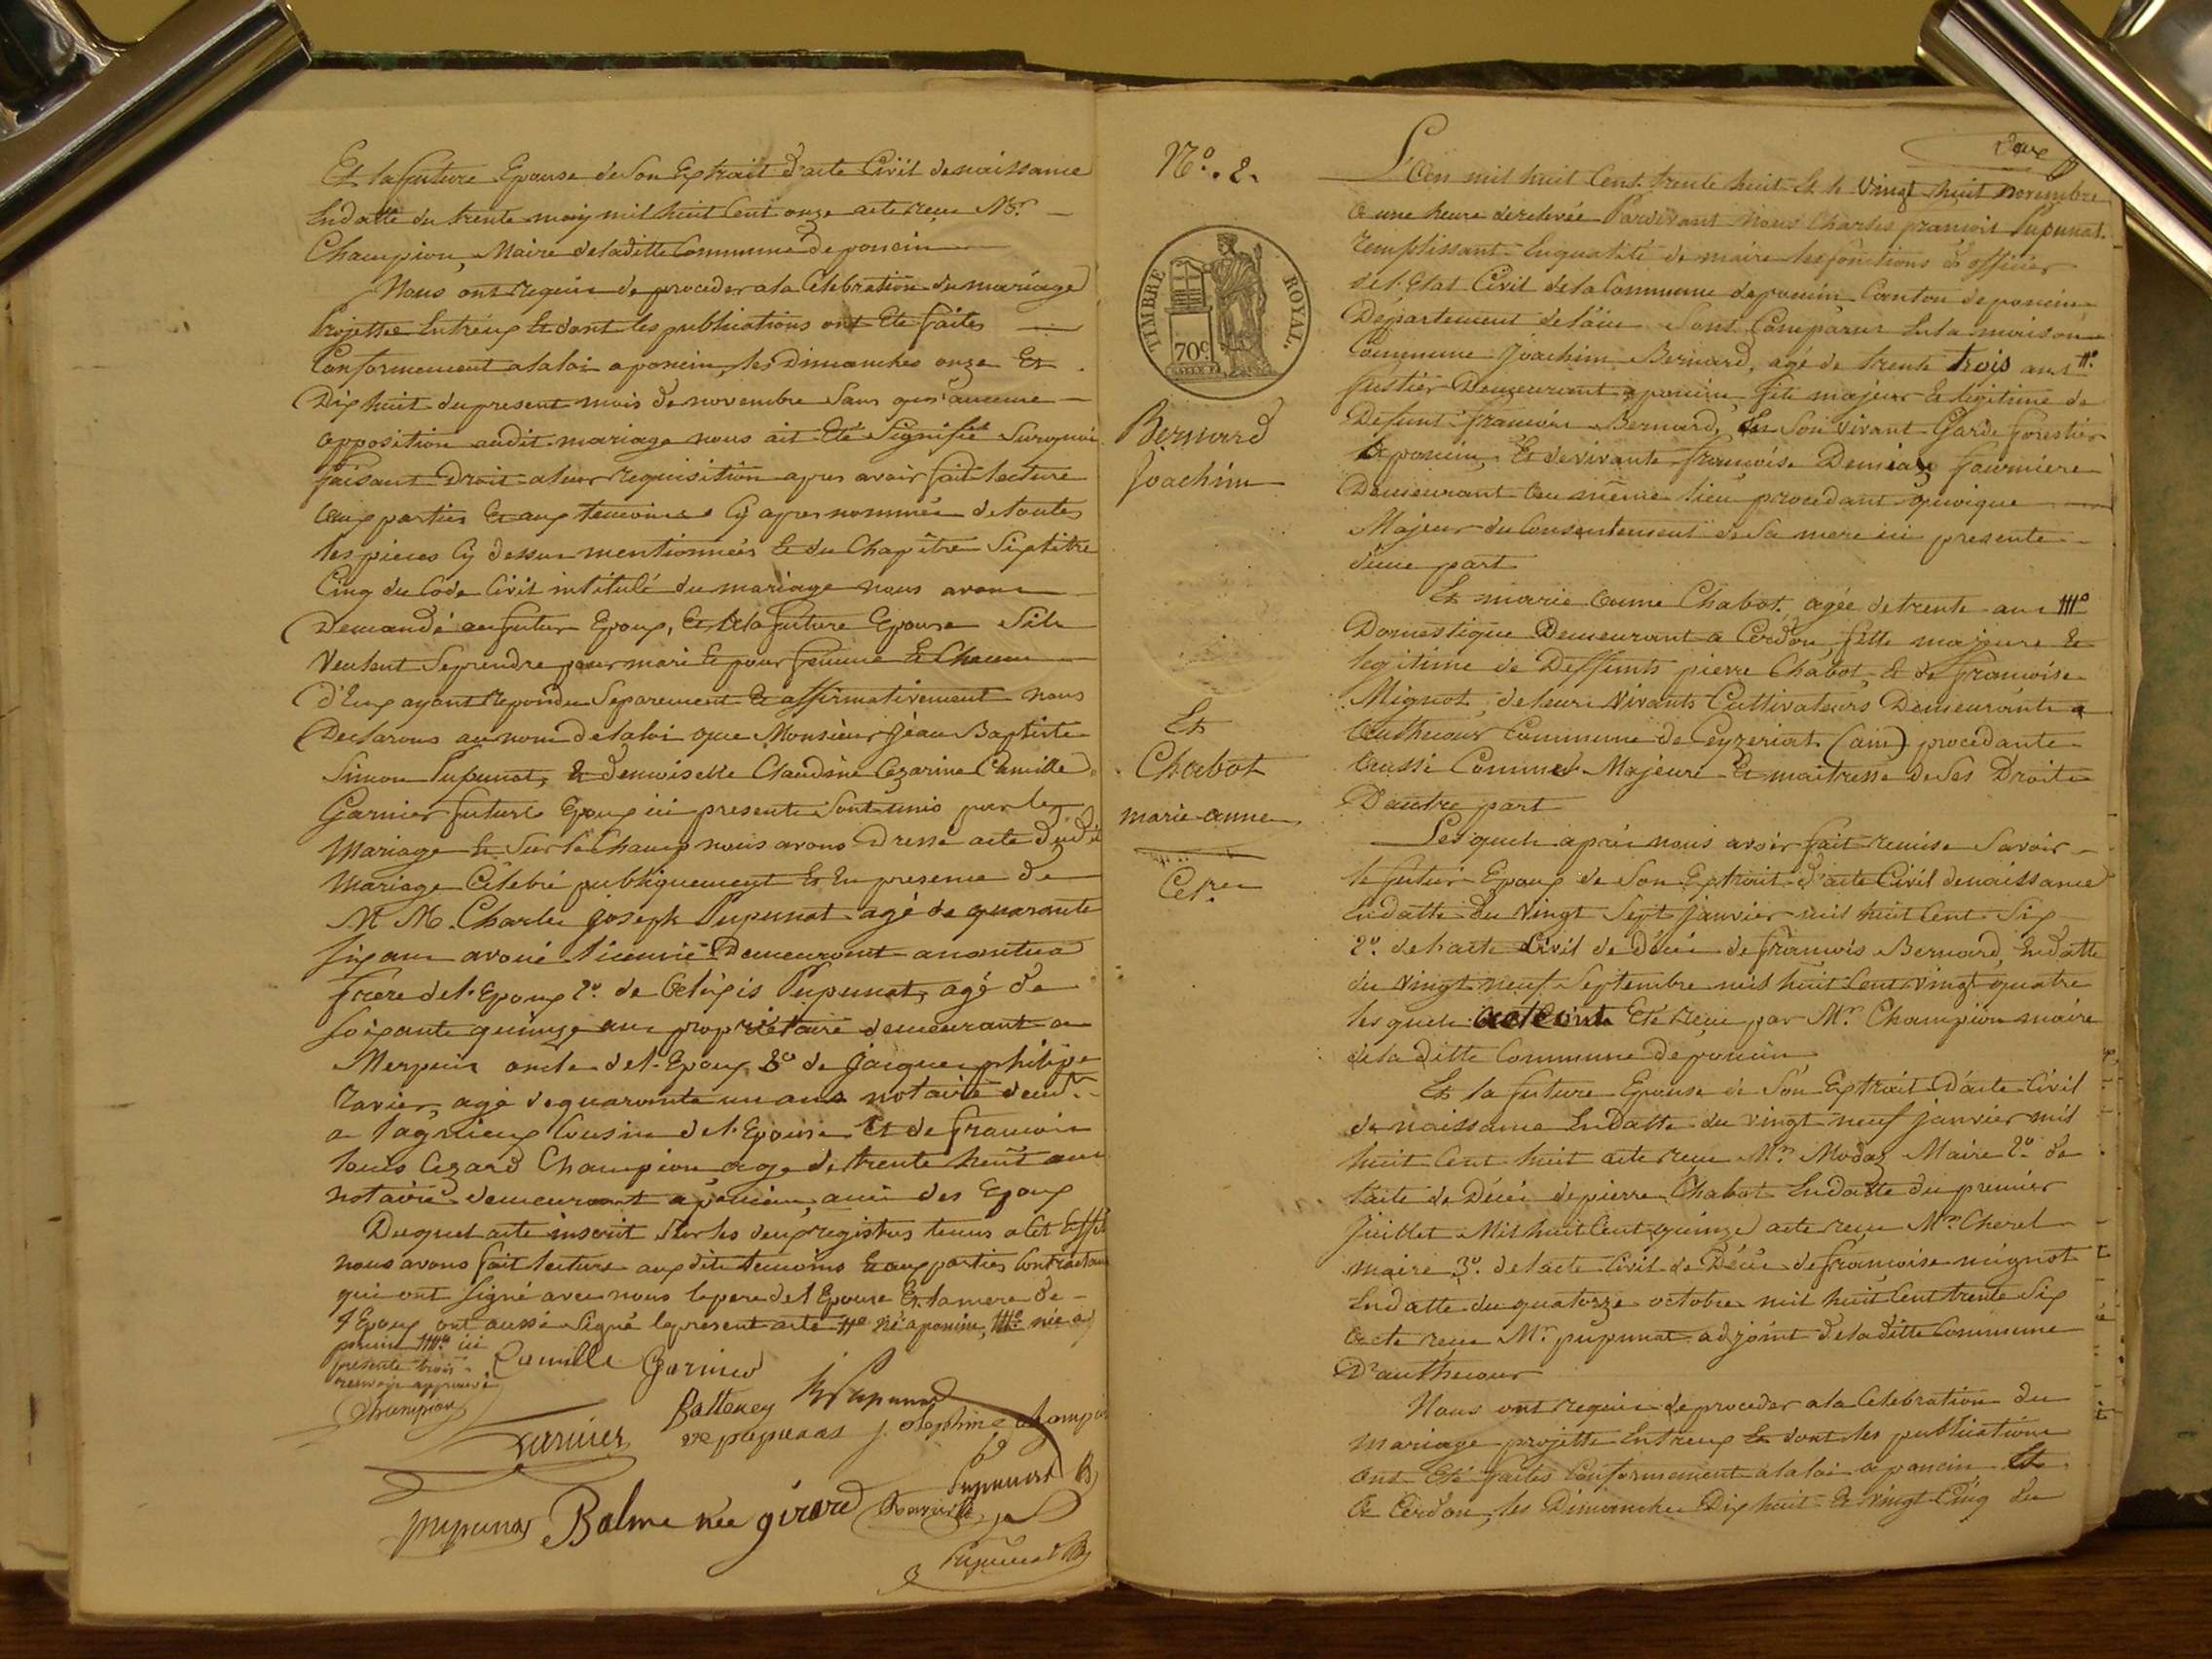 Et la future Epouse de Son Extrait d'acte Civil de naissance
En datte du trente may mil huit Cent onze acte recu Mr.
Champion, Maire de laditte Commune de poncin
Nous ont requis de proceder a la Celebration du mariage
Projetté Entreux Et dont les publications ont Eté faites
Conformement a la loi a poncin, les Dimanches onze Et
Dix huit du present mois de novembre Sans qu'aucune
opposition audit mariage nous ait Eté Signifié Surquoi
faisant Droit a leur requisition apres avoir fait lecture
aux parties Et aux temoins Cy apres nommés de toutes
les pieces Cy dessus mentionnées Et du Chapitre Six titre
Cinq du Code Civil intitulé du mariage nous avons
Demandé au futur Epoux, Et A la future Epouse S'ils
Veulent Se prendre pour mari Et pour femme Et Chacun
d'Eux ayant repondu Separement Et affirmativement nous
Declarons au nom de la loi que Monsieur Jean Baptiste
Simon Pupunat, Et demoiselle Claudine Cezarine Camille
Garnier futurs Epoux ici presents Sont unis par le
Mariage Et Sur le Champ nous avons Dressé acte dudit
Mariage Célebré publiquement Et En presence de
M M. Charles Joseph Pupunat agé de quarante
Six ans avoué licencié Demeurant a nantua
frere de l'Epoux 2o. de Aléxis Pupunat, agé de
Soixante quinze ans proprietaire demeurant a
oncle de l'Epoux 3o de Jacques philipe
Ravier, agé de quarante un ans notaire demt.
a lagnieux Cousin de l'Epouse Et de francois
louis Cezard Champion agé de trente huit ans
notaire demeurant a poncin, ami des Epoux
Duquel acte inscrit Sur les deux registres tenus a Cet Effet
nous avons fait lecture aux dits temoins Et aux parties Contractants
qui ont Signé avec nous le pere de l'Epouse Et la mere de
l'Epoux ont aussi Signé le present acte IIo né a poncin, IIIo née a
poncin IIIIo ici
presente trois
renvoje approuvé
Champion
Camille Garnier
Battency
ve pupunat J. Josephine Champion
Garnier
Pupunat
pupunat Balme née girard Ravier
Pupunat
No. 2.
Deux
TIMBRE ROYAL.
70c
Bernard
Joachim
Et
Chabot
marie anne
L'an mil huit Cent trente huit Et le Vingt huit novembre
a une heure de relevée Pardevant Nous Charles francois Pupunat
remplissant En qualité de maire les fonctions d'officier
de l'Etat Civil de la Commune de poncin Canton de poncin
Departement de l'ain Sont Comparus En la maison
Commune Joachim Bernard, agé de trente trois ans IIo
fustier Demeurant a poncin fils majeur Et legitime de
Defunt francois Bernard, En Son Vivant Garde forestier
a poncin, Et de vivante francoise Demiaz fourniere
Demeurant au même lieu procedant quoique
Majeur du Consentement de Sa mere ici presente
d'une part
Et marie anne Chabot agée de trente ans IIIo
Domestique Demeurant a Cerdon, fille majeure Et
legitime de Deffunts pierre Chabot, Et de francoise
Mignot, de leurs Vivants Cultivateurs Demeurants a
authecour Commune de Ceyzeriat (ain) procedante
aussi Comme Majeure Et maitresse de Ses Droits
D'autre part
Lesquels aprés nous avoir fait remise Savoir
le futur Epoux de Son Extrait d'acte Civil de naissance
En datte du Vingt Sept janvier mil huit Cent Six
2o. de l'acte Civil de Décés de francois Bernard, En datte
du Vingt neuf Septembre mil huit Cent vingt quatre
lesquels acte ont Eté recu par Mr. Champion maire
de la ditte Commune de poncin
Et la future Epouse de Son Extrait D'acte Civil
de naissance En datte du vingt neuf janvier mil
huit Cent huit acte recu Mr. Modaz Maire 2o. de
l'acte de Décés de pierre Chabot En datte du premier
Juillet Mil huit Cent quinze acte recu Mr. Chevel
maire 3o. de l'acte Civil de Décés de francoise mignot
En datte du quatorze octobre mil huit Cent trente Six
acte recu Mr. pupunat adjoint de la ditte Commune
D'authecour
Nous ont requis de proceder a la Celebration du
mariage projetté Entreux Et dont les publications
ont Eté faites Conformement a la loi a poncin Et
a Cerdon, les Dimanches Dix huit Et Vingt Cinq du